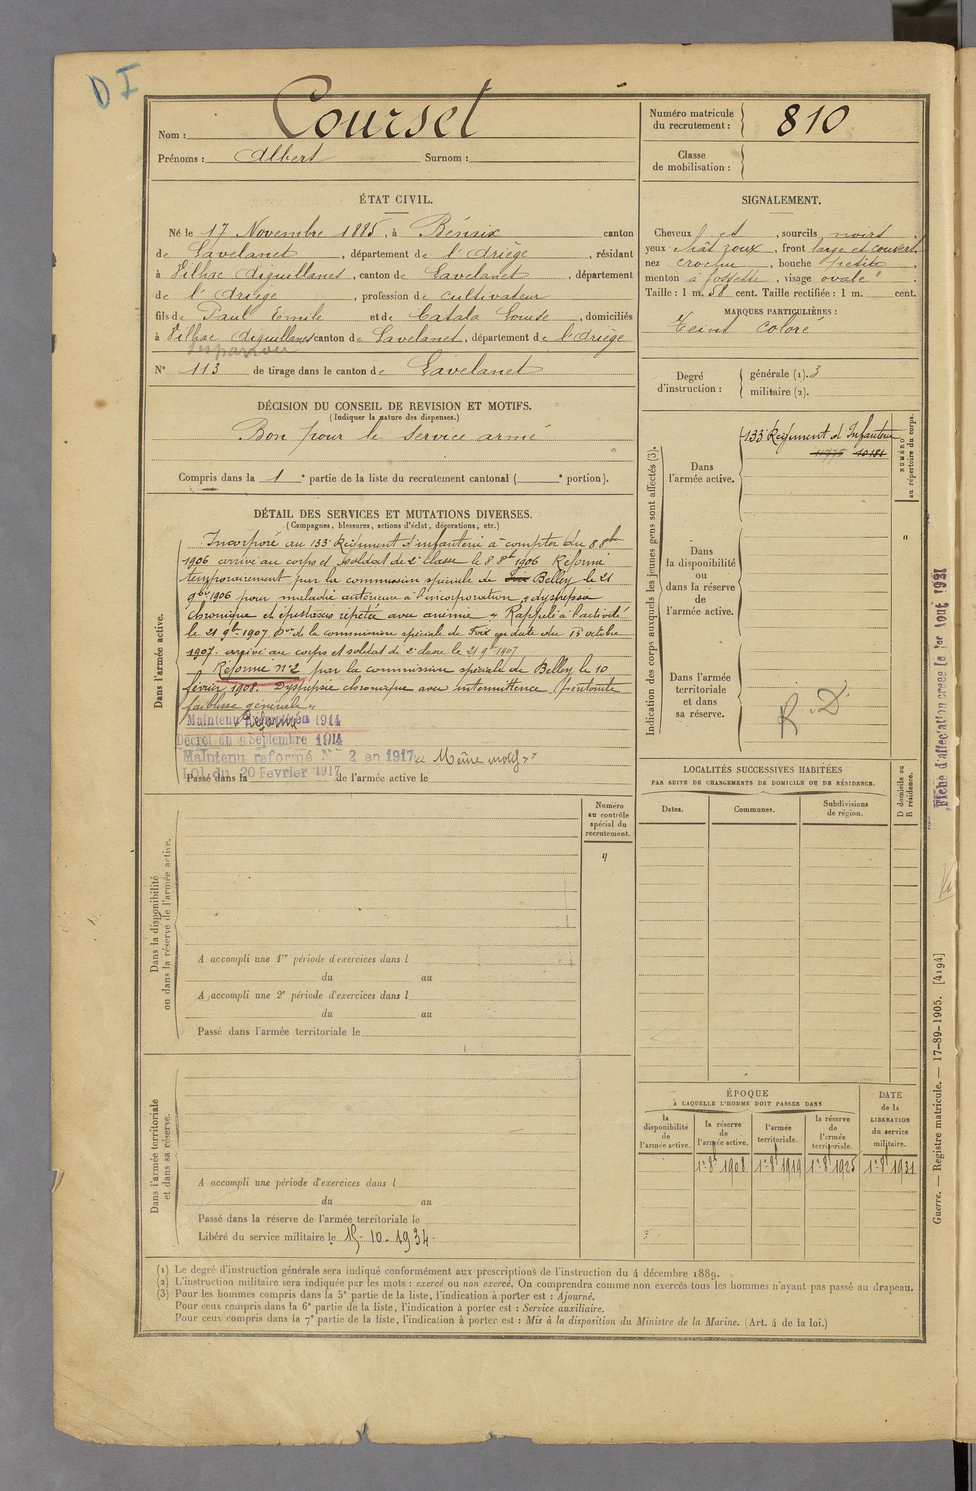 D I
Nom : Courset
Prénoms : Albert Surnom :
Numéro matricule
du recrutement : 810
Classe
de mobilisation :
ÉTAT CIVIL.
Né le 17 Novembre 1885, à Bénaix canton
de Lavelanet, département de l'Ariège, résidant
à Vilhac Aiguillanes, canton de Lavelanet, département
de l'Ariège, profession de cultivateur
fils de Paul Emile et de Catala Louise, domiciliés
à Vilhac Aiguillanes canton de Lavelanet, département de l'Ariège
N° 113 de tirage dans le canton de Lavelanet
SIGNALEMENT.
Cheveux et, sourcils noirs.
yeux chât roux, front large et couvert,
nez crochu, bouche petite,
menton à fossette, visage ovale.
Taille : 1 m. 58 cent. Taille rectifiée : 1 m. cent.
MARQUES PARTICULIÈRES :
Teint coloré
Degré
d'instruction :
générale (1). 3
militaire (2).
DÉCISION DU CONSEIL DE REVISION ET MOTIFS.
(Indiquer la nature des dispenses.)
Bon pour le service armé
Compris dans la 1 e partie de la liste du recrutement cantonal ( e portion).
DÉTAIL DES SERVICES ET MUTATIONS DIVERSES.
(Campagnes, blessures, actions d'éclat, décorations, etc.)
Dans l'armée active.
Incorporé au 133e Régiment d'infanterie à compter du 8 8bre
1906 arrivé au corps et soldat de 2e classe le 8 8bre 1906 Réformé
temporairement par la commission spéciale de Foix Belley le 21
9bre 1906 pour maladie antérieure à l'incorporation "dyspepsie
chronique et épistaxis répétée avec anémie" Rappelé à l'activité
le 21 9bre 1907 Don de la commission spéciale de Foix en date du 13 octobre
1907. arrivé au corps et soldat de 2e classe le 21 9bre 1907
Réformé n° 2 par la commission spéciale de Belley le 10
février 1908. Dyspepsie chronique avec intermittence
faiblesse générale"
Maintenu Réformé en 1914
Décret du 9 Septembre 1914
Maintenu reformé N° 2 en 1917 Même motif
Loi du 20 Fevrier 1917
Passé dans la de l'armée active le
Indication des corps auxquels les jeunes gens sont affectés (3).
Dans
l'armée active.
133e Régiment d'Infanterie
10181
NUMÉRO
au répertoire du corps.
"
Dans
la disponibilité
ou
dans la réserve
de
l'armée active.
Dans l'armée
territoriale
et dans
sa réserve.
R. D
LOCALITÉS SUCCESSIVES HABITÉES
PAR SUITE DE CHANGEMENTS DE DOMICILE OU DE RÉSIDENCE.
Dates. Communes. Subdivisions
de région.
D domicile ou
R résidence.
Numéro
au contrôle
spécial du
recrutement.
"
Dans la disponibilité
ou dans la réserve de l'armée active.
A accompli une 1re période d'exercices dans l
du au
A accompli une 2e période d'exercices dans l
du au
Passé dans l'armée territoriale le
Dans l'armée territoriale
et dans sa réserve.
A accompli une période d'exercices dans l
du au
Passé dans la réserve de l'armée territoriale le
Libéré du service militaire le 15-10-1934.
ÉPOQUE
À LAQUELLE L'HOMME DOIT PASSER DANS
la
disponibilité
de
l'armée active.
la réserve
de
l'armée active.
l'armée
territoriale.
la réserve
de
l'armée
territoriale.
DATE
de la
LIBÉRATION
du service
militaire.
1er 8bre 1908 1er 8bre 1919 1er 8bre 1925 1er 8bre 1931
(1) Le degré d'instruction générale sera indiqué conformément aux prescriptions de l'instruction du 4 décembre 1889.
(2) L'instruction militaire sera indiquée par les mots : exercé ou non exercé. On comprendra comme non exercés tous les hommes n'ayant pas passé au drapeau.
(3) Pour les hommes compris dans la 5e partie de la liste, l'indication à porter est : Ajourné.
Pour ceux compris dans la 6e partie de la liste, l'indication à porter est : Service auxiliaire.
Pour ceux compris dans la 7e partie de la liste, l'indication à porter est : Mis à la disposition du Ministre de la Marine. (Art. 4 de la loi.)
Fiche d'affectation créée le 1er Août 1921
Guerre. — Registre matricule. — 17-89-1905. [4194]